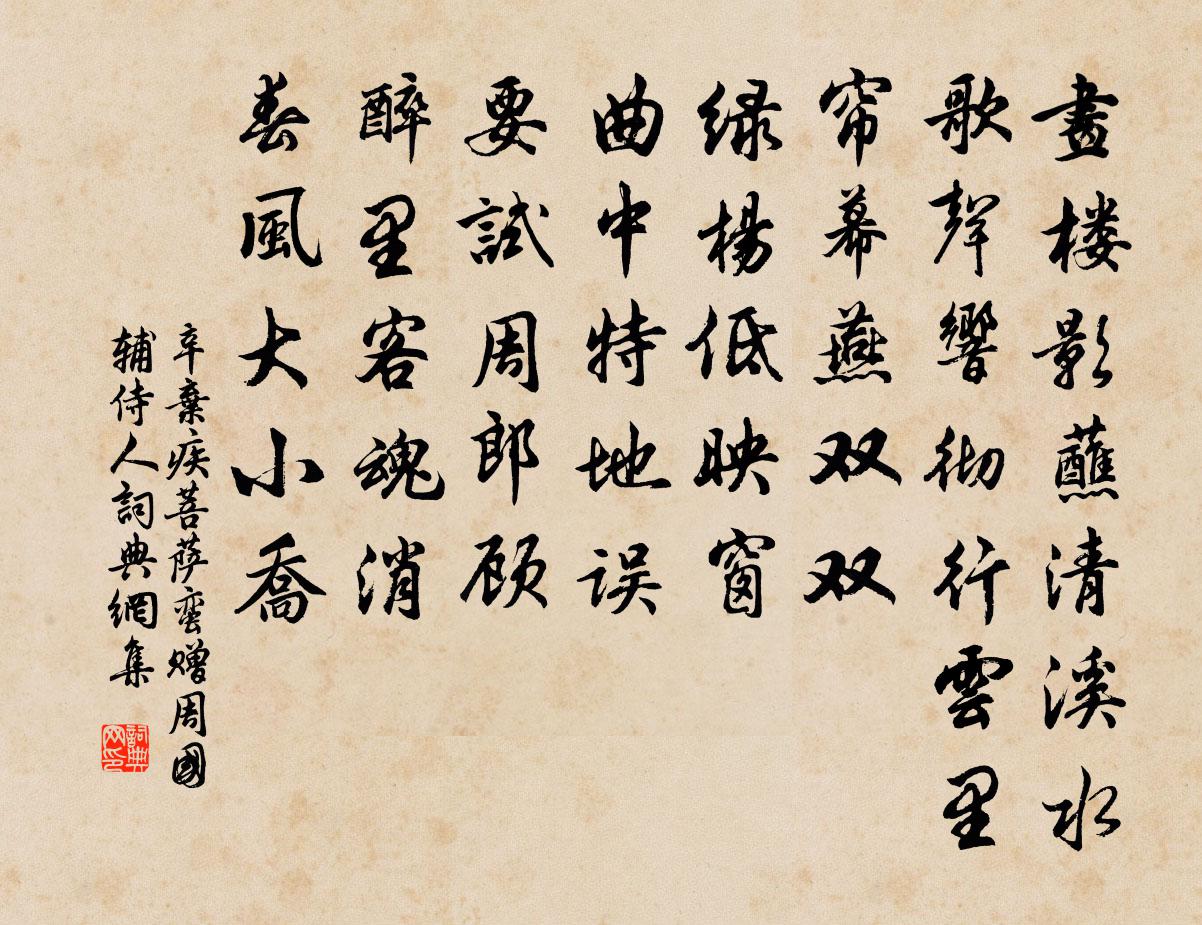 畫楼影蘸清溪水
歌聲響彻行雲里
帘幕燕双双
緑楊低映窗
曲中特地误
要試周郎顾
醉里客魂消
春風大小喬
辛棄疾菩萨蛮赠周國
辅侍人詞典網集
詞典网印